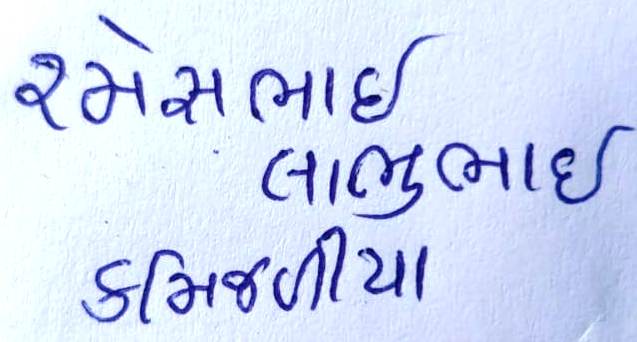 રમેસભાઈ
લાભુભાઈ
કમિજળીયા